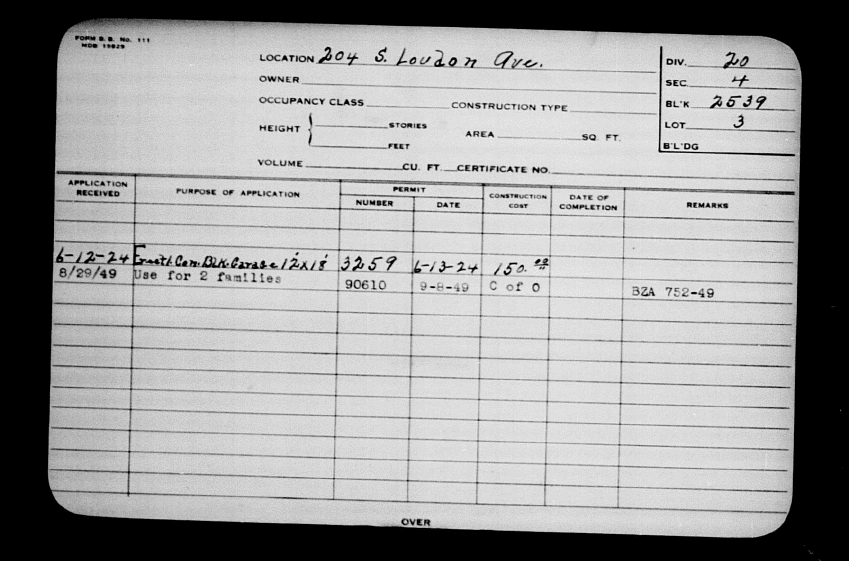 FORM B.B. No. 111
MDB 19829
LOCATION 204 S. Loudon Ave.
OWNER
OCCUPANCY CLASS CONSTRUCTION TYPE
HEIGHT { STORIES
FEET
AREA SQ. FT.
VOLUME CU. FT. CERTIFICATE NO.
DIV. 20
SEC. 4
BL'K 2539
LOT 3
B'L'DG
APPLICATION RECEIVED PURPOSE OF APPLICATION PERMIT NUMBER DATE CONSTRUCTION COST DATE OF COMPLETION REMARKS
6-12-24 Erect 1 Con. Blk. Garage 12x18 3259 6-13-24 150.00
8/29/49 Use for 2 families 90610 9-8-49 C of O BZA 752-49
OVER